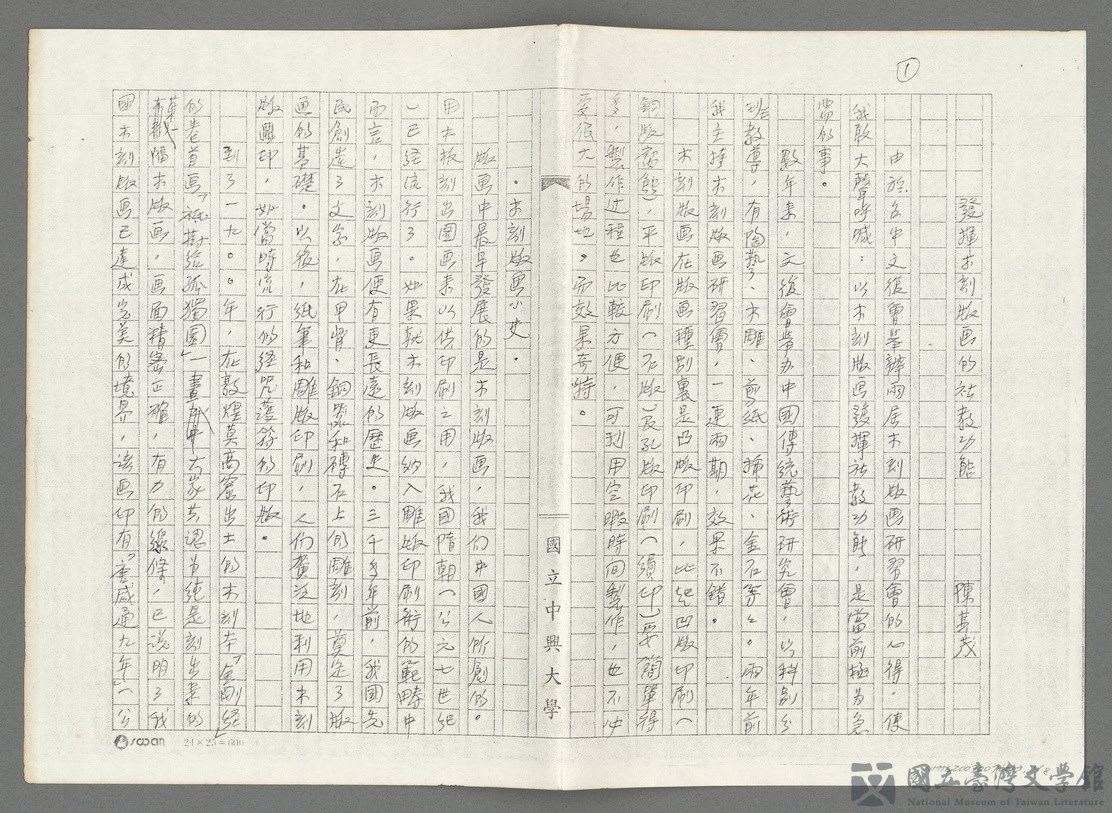 ①
發揮木刻版画的社教功能
陳其茂
由於台中文復會舉辦兩屆木刻版画研習會的心得,使
我敢大聲呼喊:以木刻版画發揮社教功能,是當前極為急
需的事。
數年來,文復會舉办中國傳統藝術研究會,以科別分
班教導,有陶藝、木雕、剪紙、插花、金石等々。兩年前
我主持木刻版画研習會,一連兩期,效果不錯。
木刻版画在版画種別裏是凸版印刷,比起凹版印刷(
銅版蝕),平版印刷(石版)及孔版印刷(絹印)要簡單得
多,製作过程也比較方便,可利用空暇時间製作,也不必
要很大的場地。而效果奇特。
·木刻版画小史·
版画中最早發展的是木刻版画,我们中國人所創的。
用木板刻出图画來以供印刷之用,我國隋朝(公元七世紀
)已經流行了。如果就木刻版画納入雕版印刷術的範疇中
而言,木刻版画便有更長遠的歷史。三千多年前,我國先
民創造了文字,在甲骨、銅器和磚石上的雕刻,奠定了版
画的基礎。以後,紙筆和雕版印刷,人们廣泛地利用木刻
版画印,如當時流行的經咒護符的印版。
到了一九〇〇年,在敦煌莫高窟出土的木刻本「金剛經」
的卷首画「祇樹給孤獨園」一畫,大家共認為純是刻出來的
幅木版画,画面精密正確,有力的線條,已說明了我
國木刻版画已達成完美的境界,該画印有「唐咸通九年」(公
國立中興大學
24×25=600
國立臺灣文學館
National Museum of Taiwan Literature